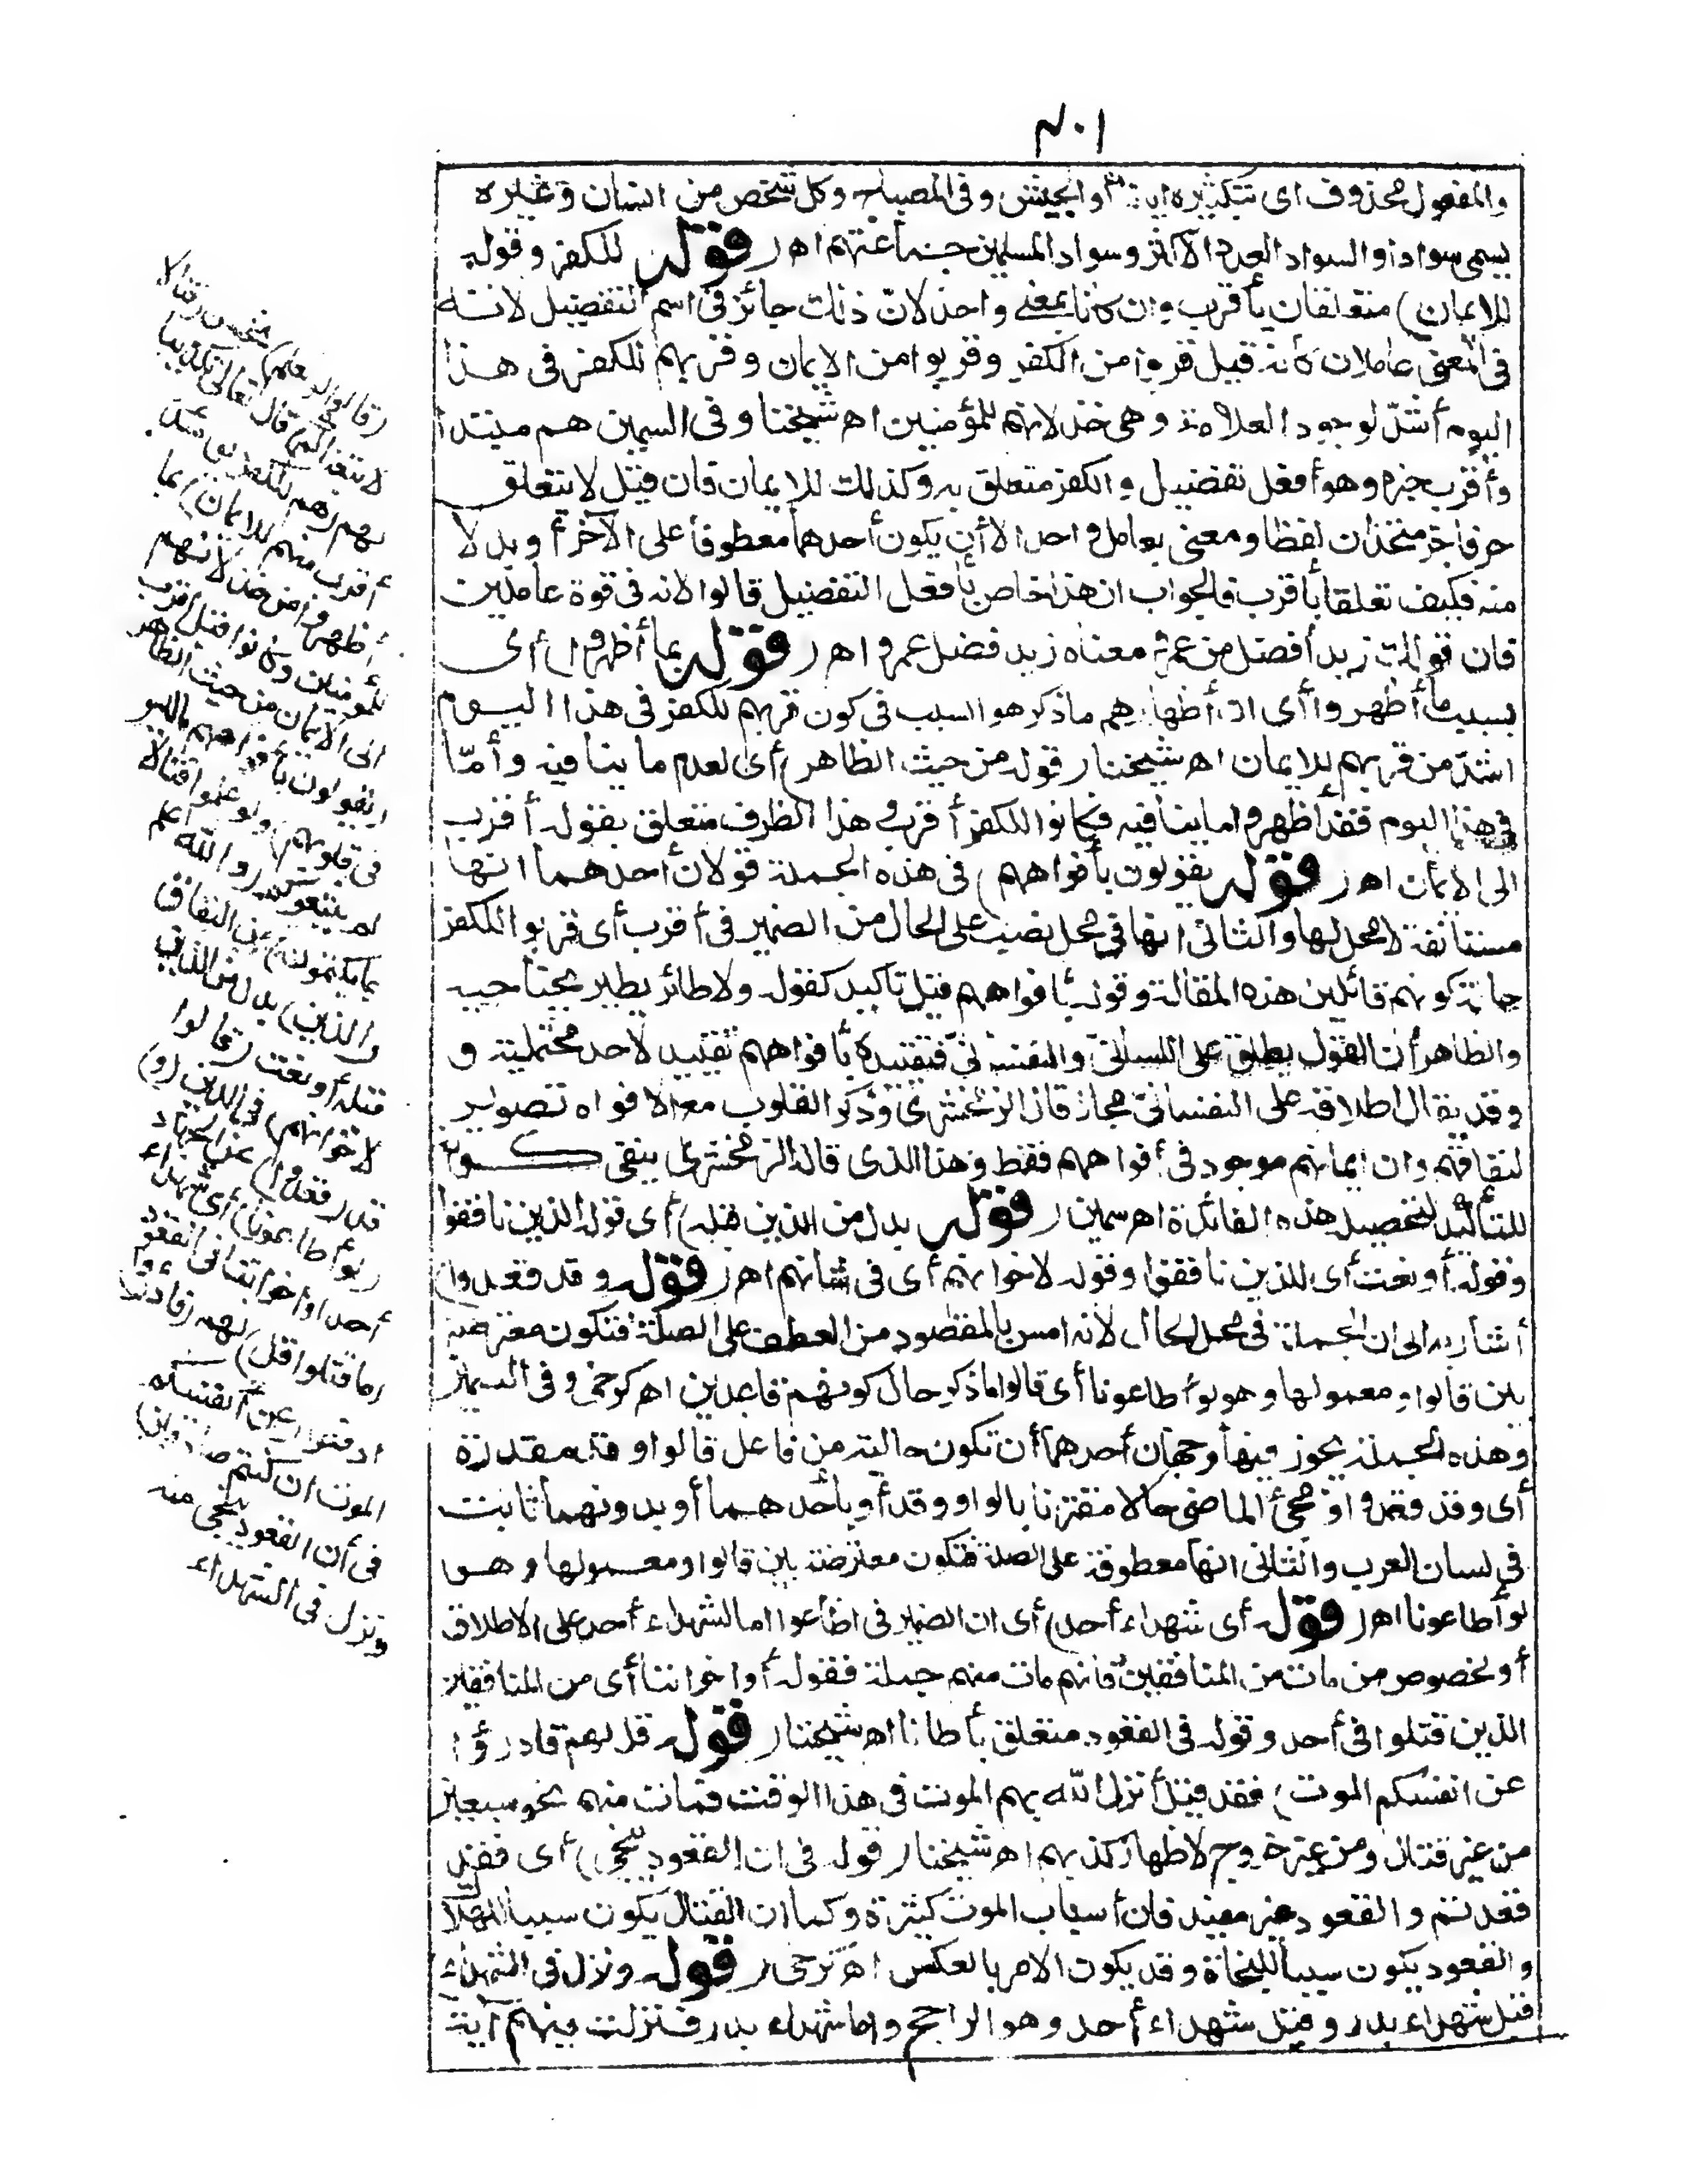 ٤٠١
والمفعول محذوف أى بتكثيره اياه أو الجيش وفى المصباح وكل شخص من انسان وغيره
يسمى سوادا والسواد العدد الاكثر وسواد المسلمين جماعتهم اهـ (قوله للكفر وقوله
للايمان) متعلقان بأقرب وان كانا بمعنى واحد لان ذلك جائز فى اسم التفضيل لانه
فى المعنى عاملان كأنه قيل قربوا من الكفر وقربوا من الايمان وقربهم للكفر فى هذا
اليوم أشد لوجود العلامة وهى خذلانهم للمؤمنين اهـ شيخنا وفى السمين هم مبتدأ
وأقرب خبره وهو أفعل تفضيل وللكفر متعلق به وكذلك للايمان فان قيل لا يتعلق
حرفا جر متحدان لفظا ومعنى بعامل واحد الا أن يكون أحدهما معطوفا على الآخر أو بدلا
منه فكيف تعلقا بأقرب فالجواب ان هذا خاص بأفعل التفضيل قالوا لانه فى قوة عاملين
فان قولك زيد أفضل من عمرو معناه زيد فضل عمروا اهـ (قوله بما أظهروا) أى
بسبب ما أظهروا أى ان أظهارهم ما ذكر هو السبب فى كون قربهم للكفر فى هذا اليوم
اشد من قربهم للايمان اهـ شيخنا (قوله من حيث الظاهر) أى لعدم ما ينافيه وأما
فى هذا اليوم فقد أظهروا ما ينافيه فكانوا للكفر أقرب وهذا الظرف متعلق بقوله أقرب
الى الايمان اهـ (قوله يقولون بأفواههم) فى هذه الجملة قولان أحدهما انها
مستأنفة لا محل لها والثانى انها فى محل نصب على الحال من الضمير فى أقرب أى قربوا للكفر
حالة كونهم قائلين هذه المقالة وقوله بأفواههم قيل تاكيد كقوله ولا طائر يطير بجناحيه
والظاهر أن القول يطلق على اللسانى والنفسانى فتقييده بأفواههم تقييد لاحد محتمليه و
وقد يقال اطلاقه على النفسانى مجاز قال الزمخشرى وذكر القلوب مع الافواه تصوير
لنفاقهم وان ايمانهم موجود فى أفواههم فقط وهذا الذى قاله الزمخشرى ينفى كونه
للتأكيد لتحصيل هذه الفائدة اهـ سمين (قوله بدل من الذين قبله) أى قوله الذين نافقوا
وقوله أو نعت أى للذين نافقوا وقوله لاخوانهم أى فى شانهم اهـ (قوله وقد قعدوا)
أشار به الى ان الجملة فى محل الحال لانه امس بالمقصود من العطف على الصلة فتكون معترضة
بين قالوا ومعمولها وهو لو أطاعونا أى قالوا ما ذكر حال كونهم قاعدين اهـ كرخى وفى السمين
وهذه الجملة يجوز فيها وجهان أحدهما أن تكون حالية من فاعل قالوا وقد مقدرة
أى وقد قعدوا ومجئ الماضى حالا مقترنا بالواو وقد أو بأحدهما أو بدونهما ثابت
فى لسان العرب والثانى انها معطوفة على الصلة فتكون معترضة بين قالوا ومعمولها وهو
لو أطاعونا اهـ (قوله أى شهداء أحد) أى ان الضمير فى اطاعوا اما لشهداء أحد على الاطلاق
أو لخصوص من مات من المنافقين فانهم مات منهم جملة فقوله أو اخواننا أى من المنافقين
الذين قتلوا فى أحد وقوله فى القعود متعلق بأطاعونا اهـ شيخنا (قوله قل لهم فادرؤا
عن انفسكم الموت) فقد قيل أنزل الله بهم الموت فى هذا الوقت فمات منهم نحو سبعين
من غير قتال ومن غير خروج لاظهار كذبهم اهـ شيخنا (قوله فى ان القعود ينجى) أى فقد
قعدتم والقعود غير مفيد فان أسباب الموت كثيرة وكما ان القتال يكون سببا للهلاك
والقعود يكون سببا للنجاة وقد يكون الامر بالعكس اهـ كرخى (قوله ونزل فى الشهداء)
قيل شهداء بدر وقيل شهداء أحد وهو الراجح واما شهداء بدر فنزلت فيهم آية
(قالوا لو نعلم) نحسن (قتالا
لاتبعناكم) قال تعالى تكذيبا
لهم (هم للكفر يومئذ
أقرب منهم للايمان) بما
أظهروا من خذلانهم
للمؤمنين وكانوا قبل أقرب
الى الايمان من حيث الظاهر
(يقولون بأفواههم ما ليس
فى قلوبهم) ولو علموا قتالا
لم يتبعوكم (والله أعلم
بما يكتمون) من النفاق
(الذين) بدل من الذين
قبله أو نعت (قالوا
لاخوانهم) فى الدين (و)
قد (قعدوا) عن الجهاد
(لو أطاعونا) أى شهداء
أحد او اخواننا فى القعود
(ما قتلوا قل) لهم (فادرؤا)
ادفعوا (عن أنفسكم
الموت ان كنتم صادقين)
فى أن القعود ينجى منه
ونزل فى الشهداء